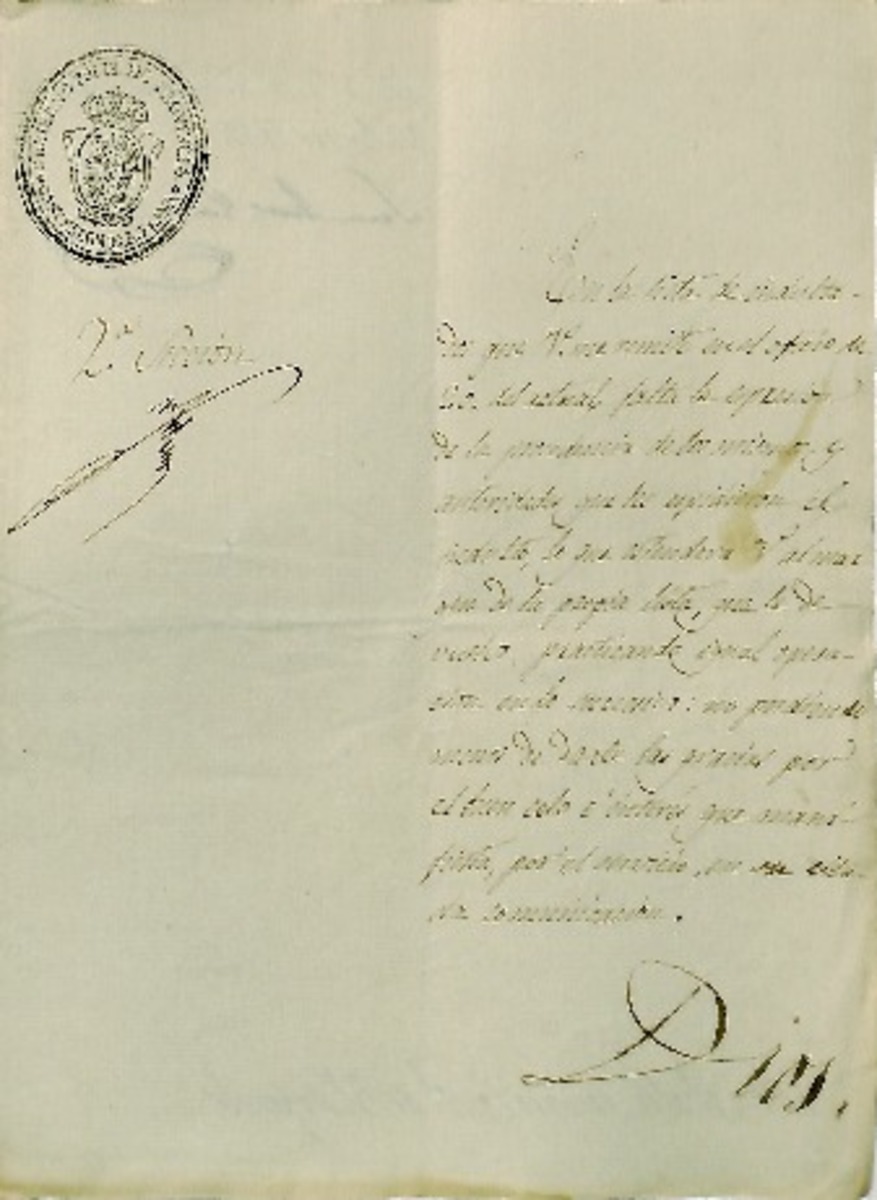 2ª Sección
En la lista de indulta-
dos que V. me remite en el oficio de
del actual, falta la espresion
de la procedencia de los mismos y
autoridades que les espidieron el
indulto, lo que estenderá V. al mar
gen de la propia lista, que le de-
vuelvo, practicando igual opera-
cion en lo sucesivo: no pudiendo
menos de darle las gracias por
el buen celo e interés que mani-
fiesta, por el servicio, en su cita-
da comunicacion.
Dios.